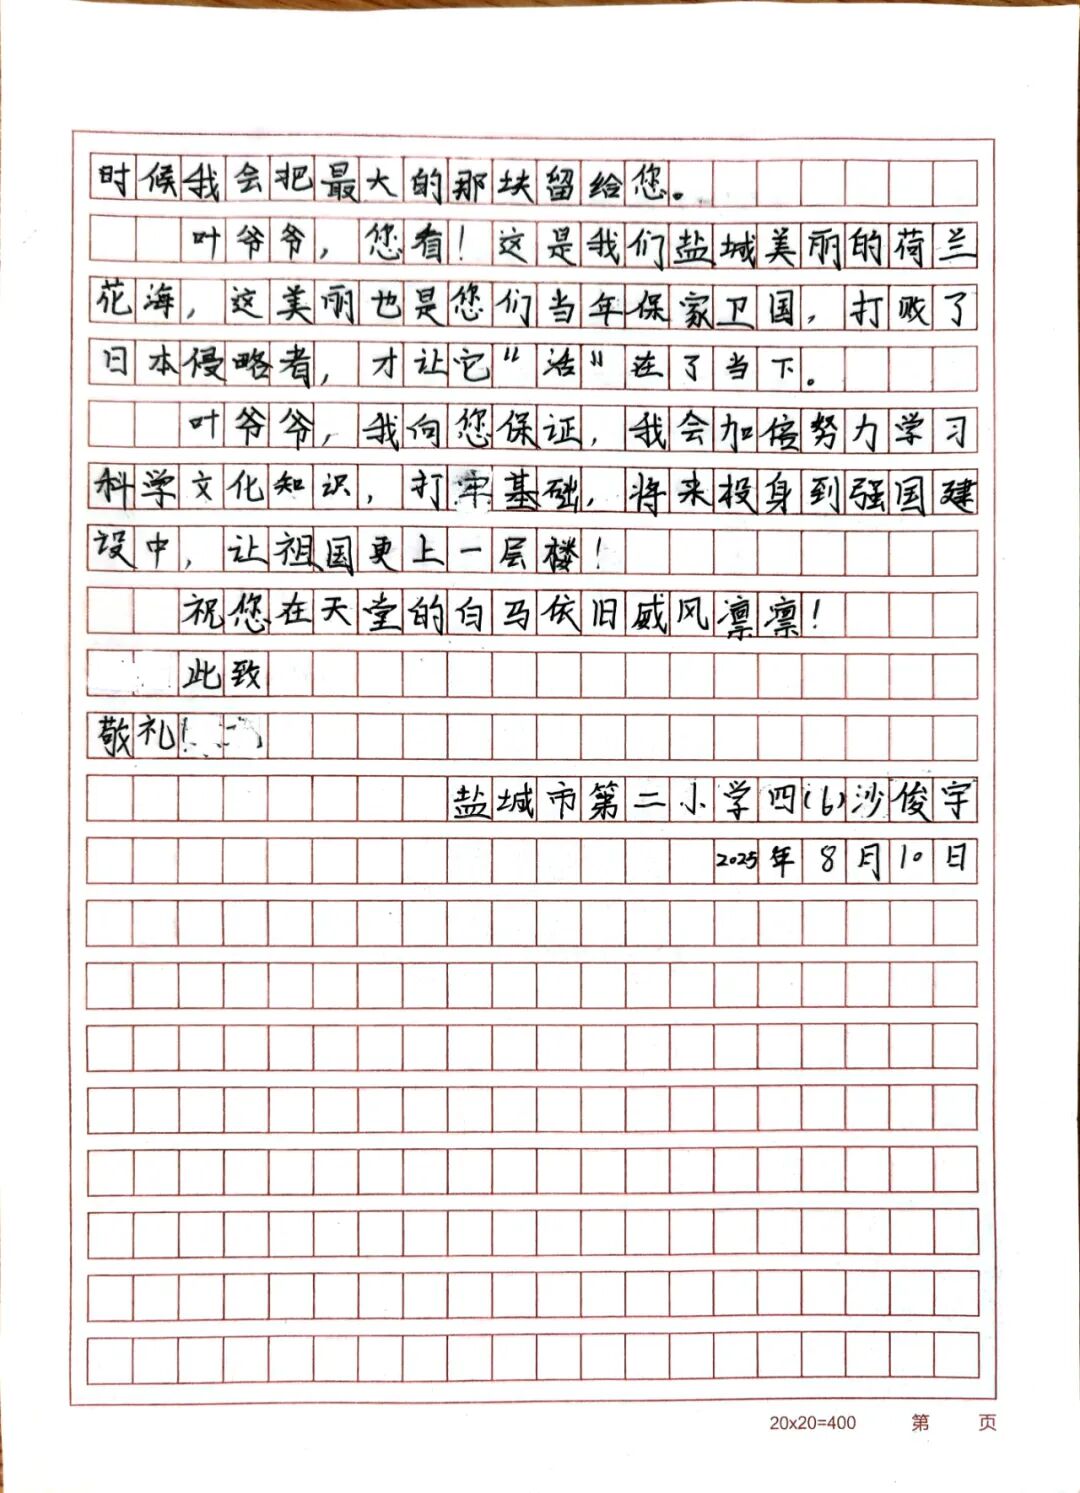 时候我会把最大的那块留给您。
叶爷爷，您看！这是我们盐城美丽的荷兰
花海，这美丽也是您们当年保家卫国，打败了
日本侵略者，才让它“活”在了当下。
叶爷爷，我向您保证，我会加倍努力学习
科学文化知识，打牢基础，将来投身到强国建
设中，让祖国更上一层楼！
祝您在天堂的白马依旧威风凛凛！
此致
敬礼！
盐城市第二小学四(6)沙俊宇
2025年8月10日
20x20=400 第 页